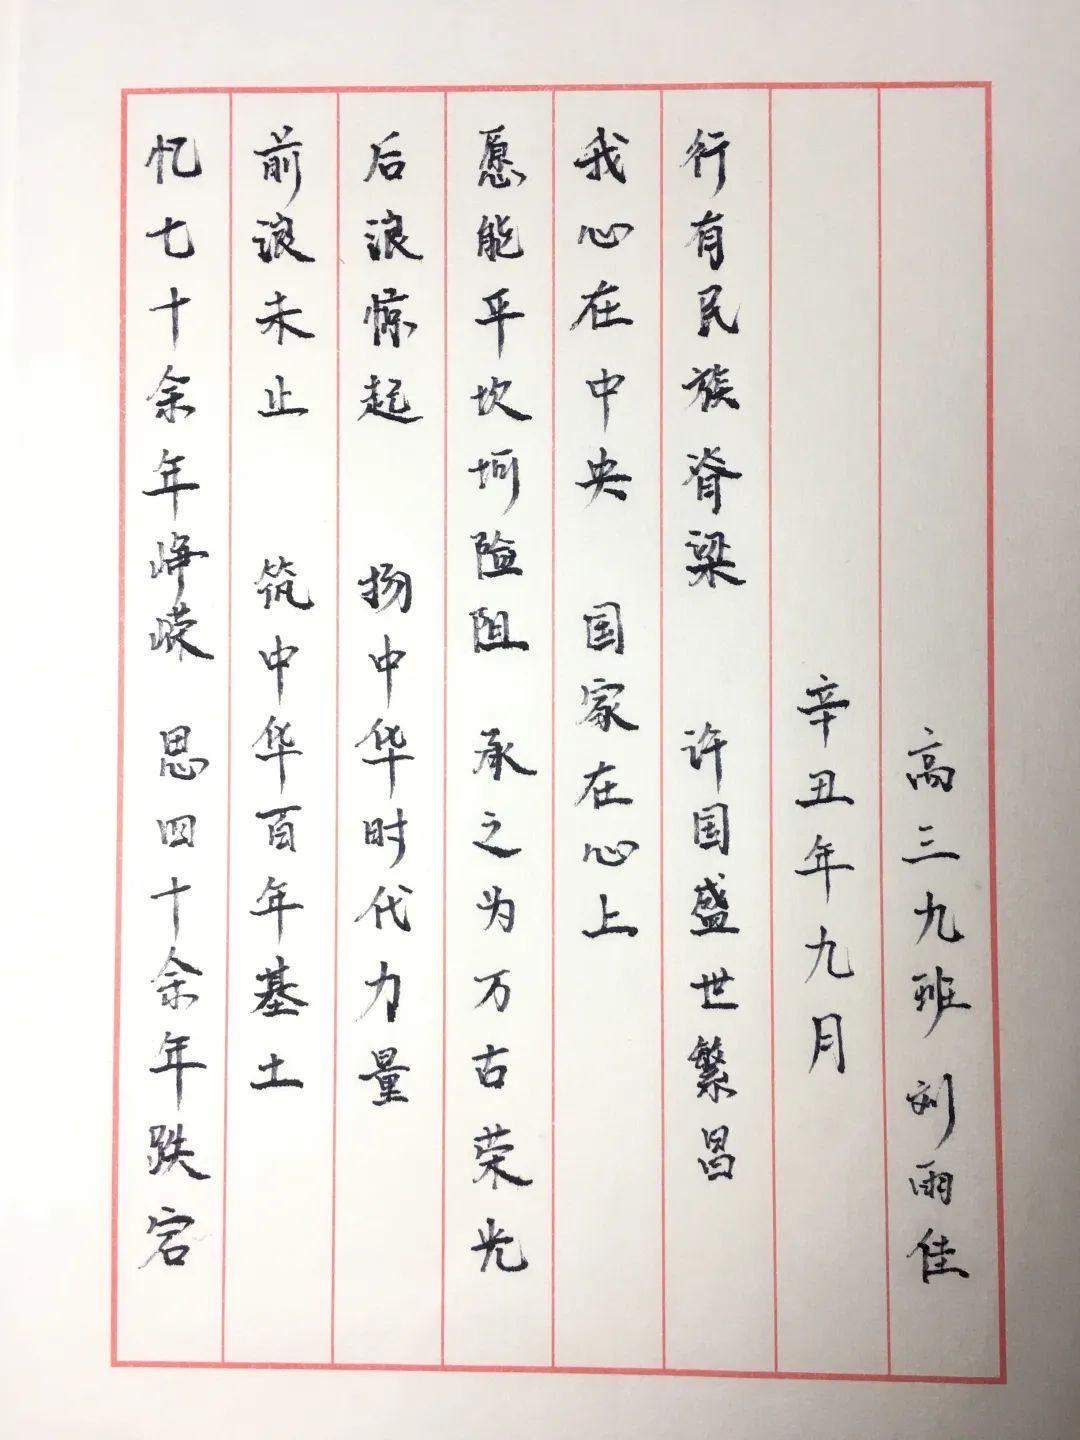 忆七十余年峥嵘 思四十余年跌宕
前浪未止 筑中华百年基土
后浪惊起 扬中华时代力量
愿能平坎坷险阻 承之为万古荣光
我心在中央 国家在心上
行有民族脊梁 许国盛世繁昌
辛丑年九月
高三九班 刘雨佳